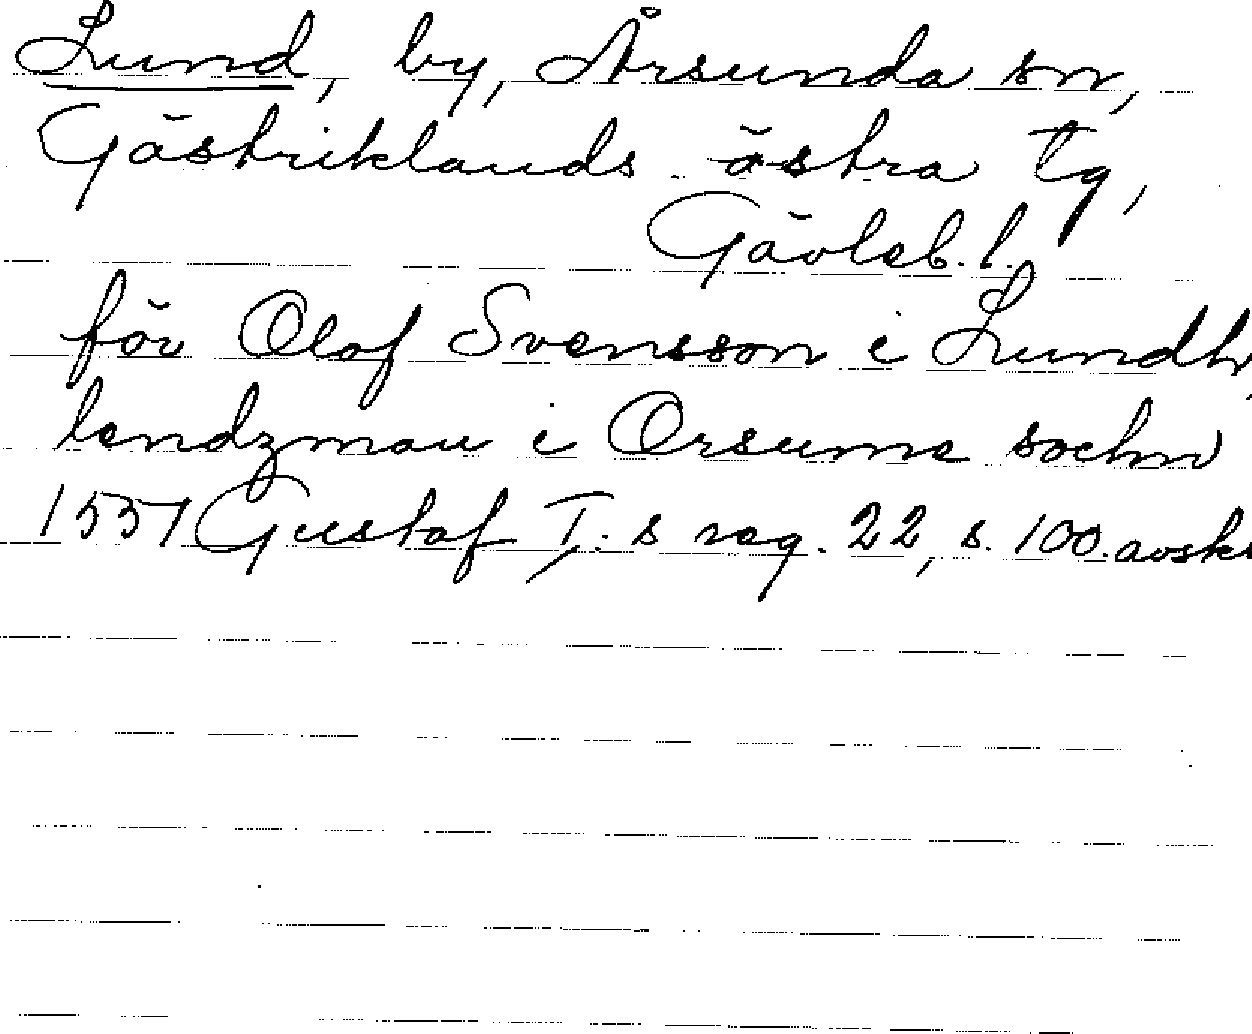 Lund, by, Årsunda sn,
Gästriklands östra tg,
Gävleb. l.
för Olof Svensson i Lundh,
lendzman i Orsunna sochn
1557 Gustaf I.s reg. 22, s. 100. avskr